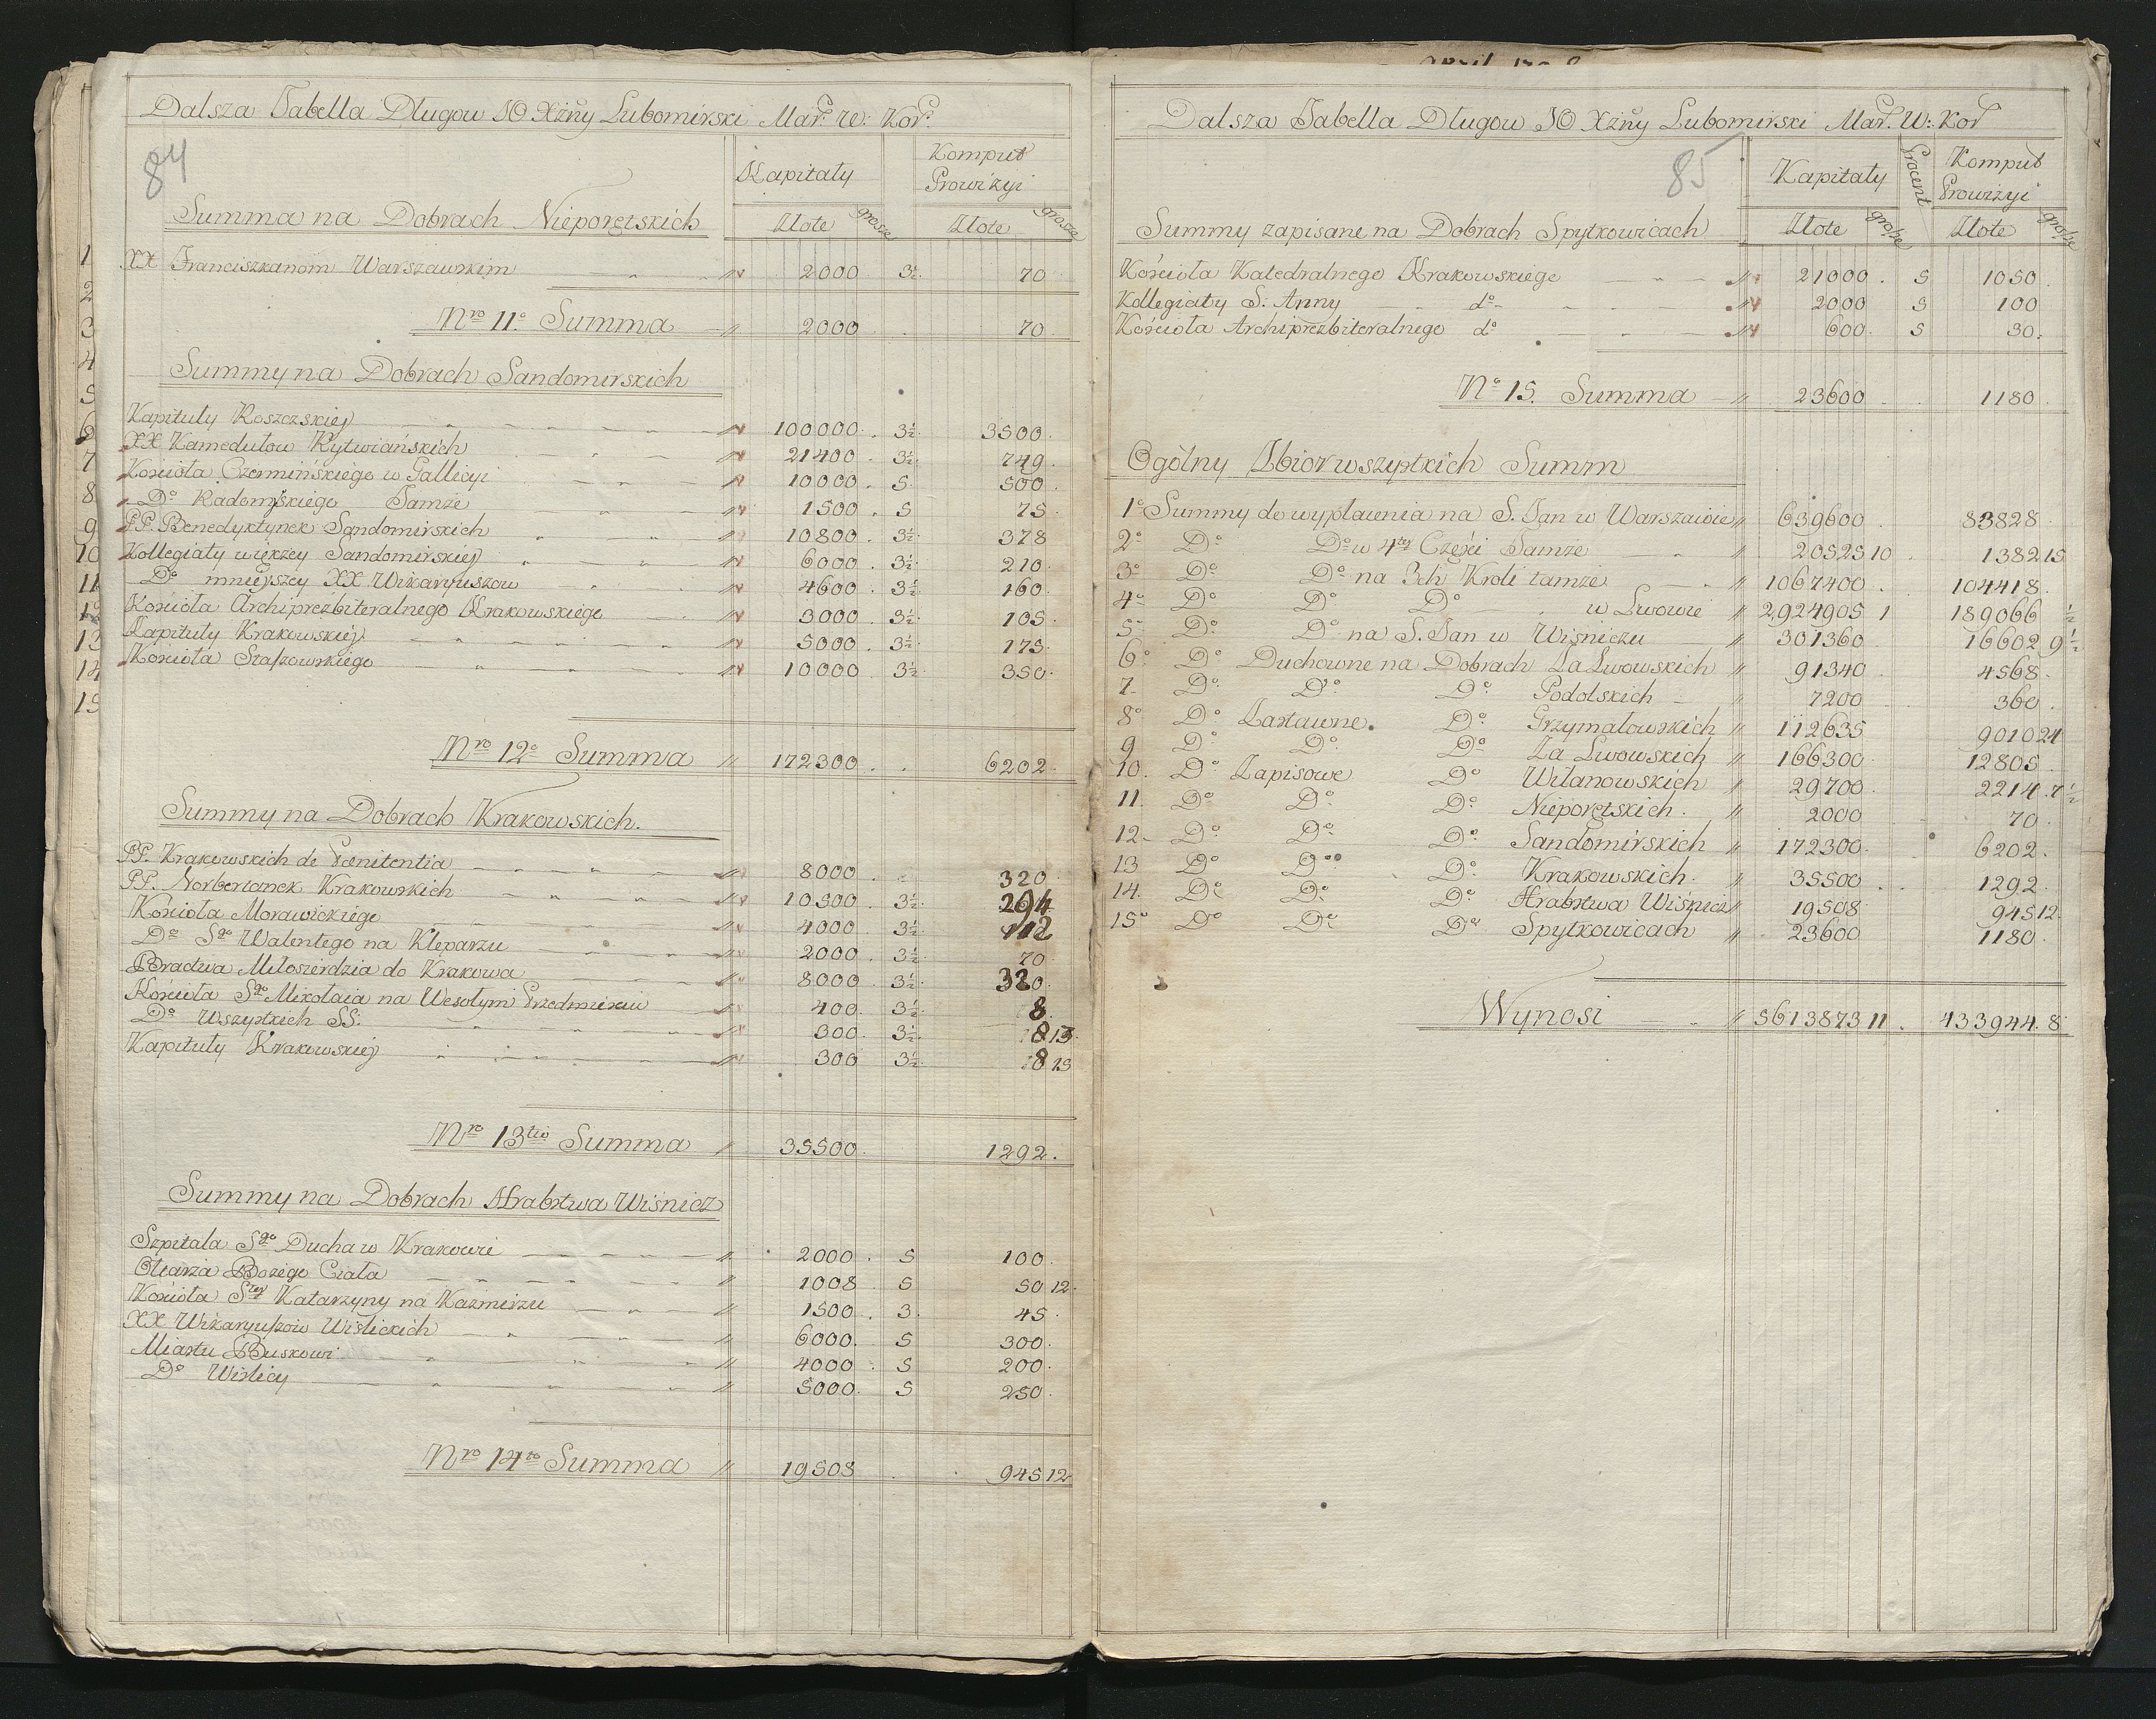 Dalsza Tabella Długow JO Xżny Lubomirski Mar. W: Kor.
84
Kapitały Komput Prowizyi
Summa na Dobrach Nieporętskich Złote grosze Złote grosze
XX Franciszkanom Warszawskim 2000 3½ 70
Nro 11o Summa 2000 70
Summy na Dobrach Sandomirskich
Kapituły Koszczskiey 100000 3½ 3500
XX Kamedułow Rytwiańskich 21400 3½ 749
Kościoła Czermińskiego w Gallicyi 10000 5 500
Do Radomyskiego Tamże 1500 5 75
PP. Benedyktynek Sandomirskich 10800 3½ 378
Kollegiaty większey Sandomirskiey 6000 3½ 210
Do mnieyszey XX Wikaryuszow 4600 3½ 160
Kościoła Archiprezbiteralnego Krakowskiego 3000 3½ 105
Kapituły Krakowskiey 5000 3½ 175
Kościoła Staszowskiego 10000 3½ 350
Nro 12o Summa 172300 6202
Summy na Dobrach Krakowskich.
PP. Krakowskich de Pœnitentia 8000 320
PP. Norbertanek Krakowskich 10500 3½
Kościoła Morawickiego 4000 3½
Do Sgo Walentego na Kleparzu 2000 3½ 70
Bractwa Miłosierdzia do Krakowa 8000 3½ 320
Kościoła Sgo Mikołaia na Wesołym Przedmieściu 400 3½ 8
Do Wszystkich SS. 300 3½ 8 15
Kapituły Krakowskiey 300 3½ 8 15
Nro 13tio Summa 35500 1292.
Summy na Dobrach Hrabstwa Wiśnicz
Szpitala Sgo Ducha w Krakowie 2000 5 100
Ołtarza Bożego Ciała 1008 5 50 12
Kościoła Stey Katarzyny na Kazmirzu 1500 3 45
XX Wikaryuszow Wislickich 6000 5 300
Miastu Buskowi 4000 5 200
Do Wislicy 5000 5 250
Nro 14to Summa 19508 945 12
1
2
3
4
5
6
7
8
9
10
11
13
14
15
Dalsza Tabella Długow JO Xżny Lubomirski Mar. W: Kor
85
Kapitały Procent Komput Prowizyi
Summy zapisane na Dobrach Spytkowicach Złote grosze Złote grosze
Kościoła Katedralnego Krakowskiego 21000 5 1050
Kollegiaty S. Anny do 2000 5 100
Kościoła Archiprezbiteralnego do 600 5 30
No 15. Summa 23600 1180
Ogólny Zbior wszystkich Summ
1o Summy do wypłacenia na S. Jan w Warszawie 639600 83828
2o Do Do w 4tey Części Tamże 20525 10 1382 15
3o Do Do na 3ch Kroli tamże 1067400 104418
4o Do Do Do w Lwowie 2924905 1 189066 ½
5o Do Do na S. Jan w Wiśniczu 301360 16602 9½
6o Do Duchowne na Dobrach Za Lwowskich 91340 4568
7 Do Do Do Podolskich 7200 360
8o Do Zastawne Do Grzymałowskich 112635 9010 24
9 Do Do Do Za Lwowskich 166300 12805
10. Do Zapisowe Do Wilanowskich 29700 2214 7½
11. Do Do Do Nieporętskich 2000 70
12 Do Do Do Sandomirskich 172300 6202
13 Do Do Do Krakowskich 35500 1292
14. Do Do Do Hrabstwa Wiśnicz 19508 945 12
15o Do Do Do Spytkowicach 23600 1180
Wynosi 5613873 11 433944 8